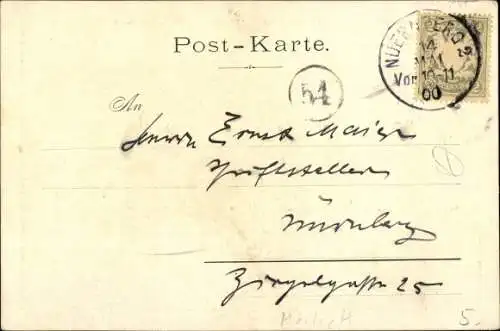 Post-Karte.
NUERNBERG 2
14
MAI
Vor 10-11
00
54
An
Herrn Ernst Maier
Schriftsteller
Nürnberg
Ziegelgasse 25.
5.